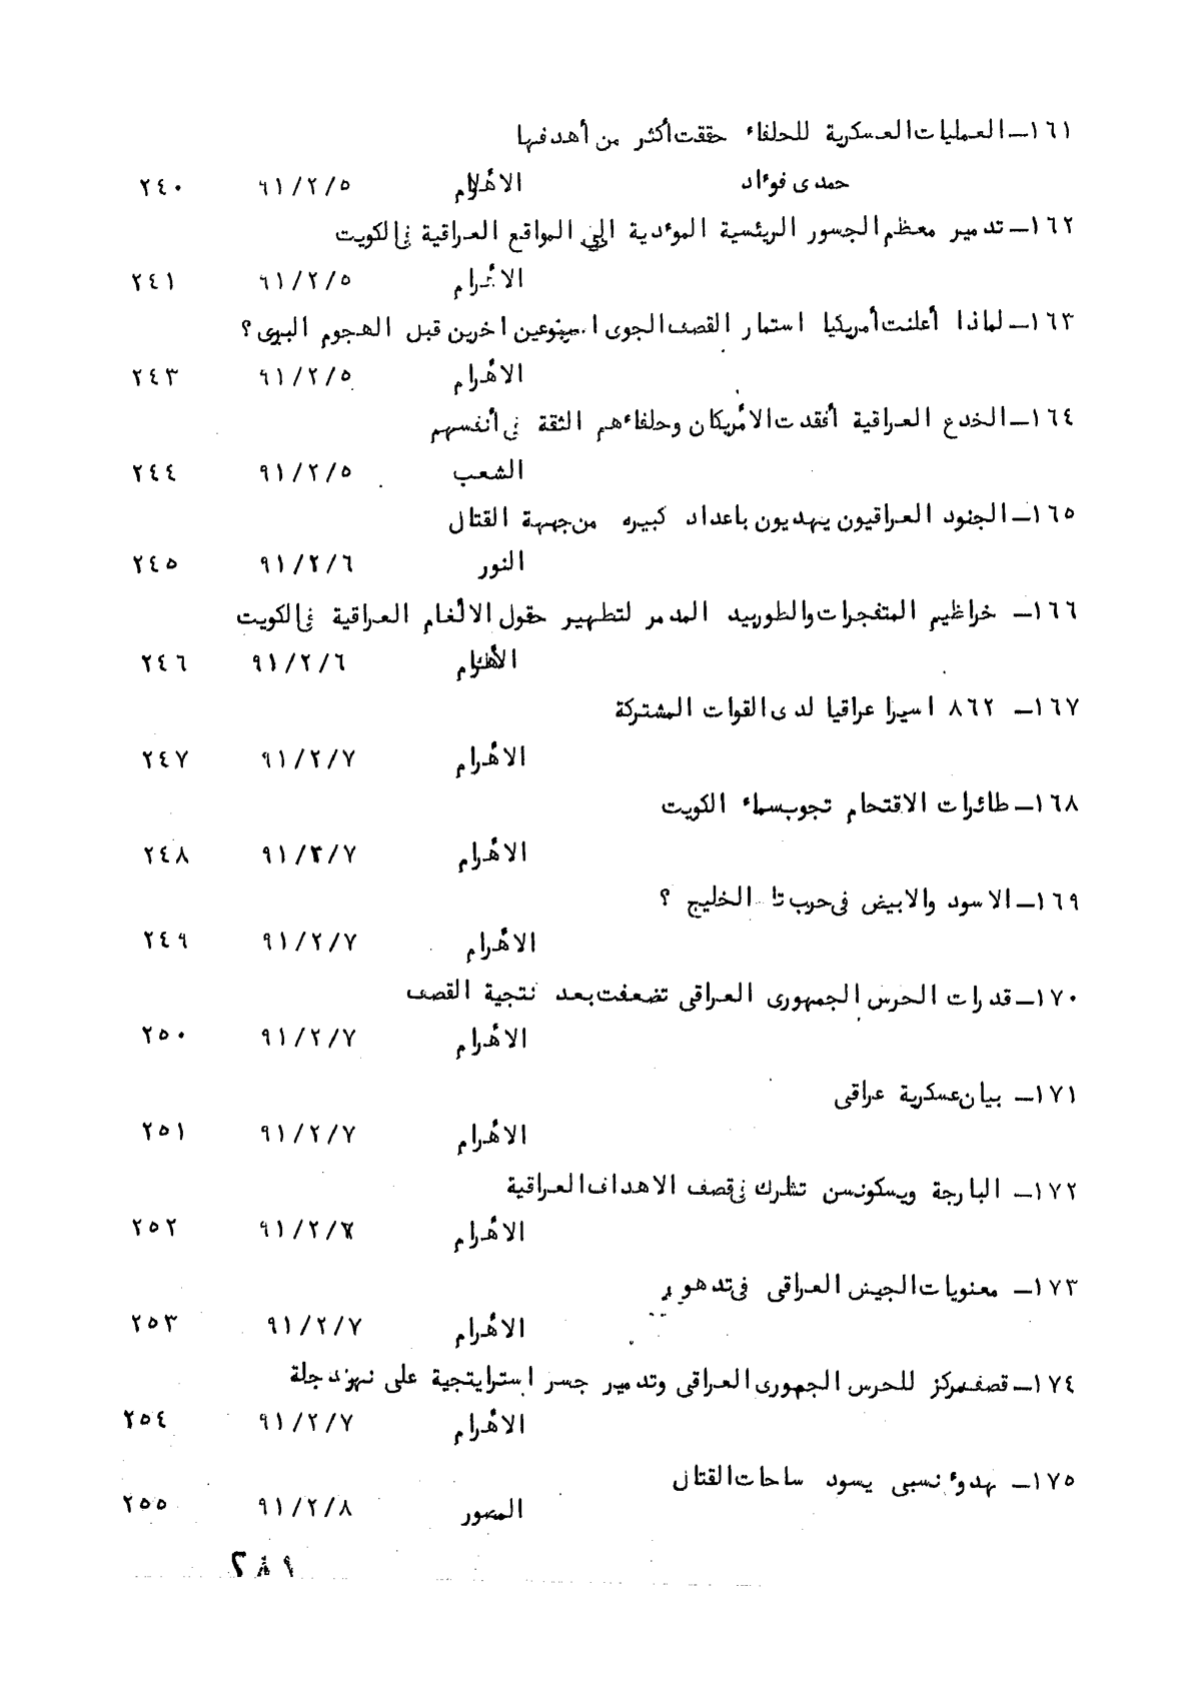 ١٦١ــ العمليات العسكرية للحلفاء حققت أكثر من أهدفها
حمدى فوءاد الأهرام ٩١/٢/٥ ٢٤٠
١٦٢ــ تدمير معظم الجسور الريئسية الموءدية الي المواقع العراقية في الكويت
الأهرام ٩١/٢/٥ ٢٤١
١٦٣ــ لماذا أعلنت أمريكيا استمار القصف الجوى اسبوعين اخرين قبل الهجوم البرى؟
الأهرام ٩١/٢/٥ ٢٤٣
١٦٤ــ الخدع العراقية أفقدت الأمريكان وحلفاءهم الثقة فى أنفسهم
الشعب ٩١/٢/٥ ٢٤٤
١٦٥ــ الجنود العراقيون يهديون باعداد كبيره من جهبة القتال
النور ٩١/٢/٦ ٢٤٥
١٦٦ــ خراظيم المتفجرات والطوربيد المدمر لتطهير حقول الألغام العراقية في الكويت
الأهرام ٩١/٢/٦ ٢٤٦
١٦٧ــ ٨٦٢ اسيرا عراقيا لدى القوات المشتركة
الأهرام ٩١/٢/٧ ٢٤٧
١٦٨ــ طائرات الاقتحام تجوب سماء الكويت
الأهرام ٩١/٢/٧ ٢٤٨
١٦٩ــ الاسود والابيض فى حرب تا الخليج ؟
الأهرام ٩١/٢/٧ ٢٤٩
١٧٠ــ قدرات الحرس الجمهورى العراقى تضعفت بعد نتجية القصف
الأهرام ٩١/٢/٧ ٢٥٠
١٧١ــ بيان عسكرية عراقى
الأهرام ٩١/٢/٧ ٢٥١
١٧٢ــ البارجة ويسكونسن تشترك فى قصف الاهداف العراقية
الأهرام ٩١/٢/٧ ٢٥٢
١٧٣ــ معنويات الجيش العراقى فى تدهور
الأهرام ٩١/٢/٧ ٢٥٣
١٧٤ــ قصف مركز للحرس الجمهورى العراقى وتدمير جسر استرايتجية على نهر دجلة
الأهرام ٩١/٢/٧ ٢٥٤
١٧٥ــ هدوء نسبى يسود ساحات القتال
المصور ٩١/٢/٨ ٢٥٥